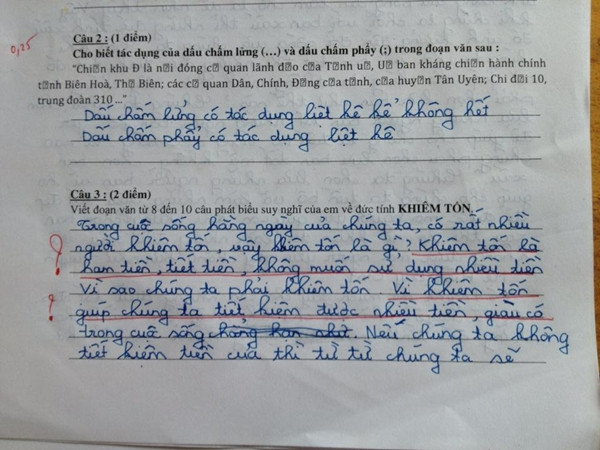 0,25
Câu 2 : (1 điểm)
Cho biết tác dụng của dấu chấm lửng (…) và dấu chấm phẩy (;) trong đoạn văn sau :
“Chi�n khu Đ là n�i đóng c� quan lãnh đ�o của T�nh u�, U� ban kháng chi�n hành chính
t�nh Biên Hoà, Th� Biên; các c� quan Dân, Chính, Đ�ng c�a t�nh, c�a huy�n Tân Uyên; Chi đ�i 10,
trung đoàn 310 ...”
Dấu chấm lửng có tác dụng liệt kê kể không hết
Dấu chấm phẩy có tác dụng liệt kê
Câu 3 : (2 điểm)
Viết đoạn văn từ 8 đến 10 câu phát biểu suy nghĩ của em về đức tính KHIÊM TỐN.
Trong cuộc sống hằng ngày của chúng ta, có rất nhiều
người khiêm tốn, vậy khiêm tốn là gì? Khiêm tốn là
ham tiền, tiết tiền, không muốn sử dụng nhiều tiền
Vì sao chúng ta phải khiêm tốn Vì khiêm tốn
giúp chúng ta tiết kiệm được nhiều tiền, giàu có
trong cuộc sống chẳng hạn như. Nếu chúng ta không
tiết kiệm tiền của thì từ từ chúng ta sẽ